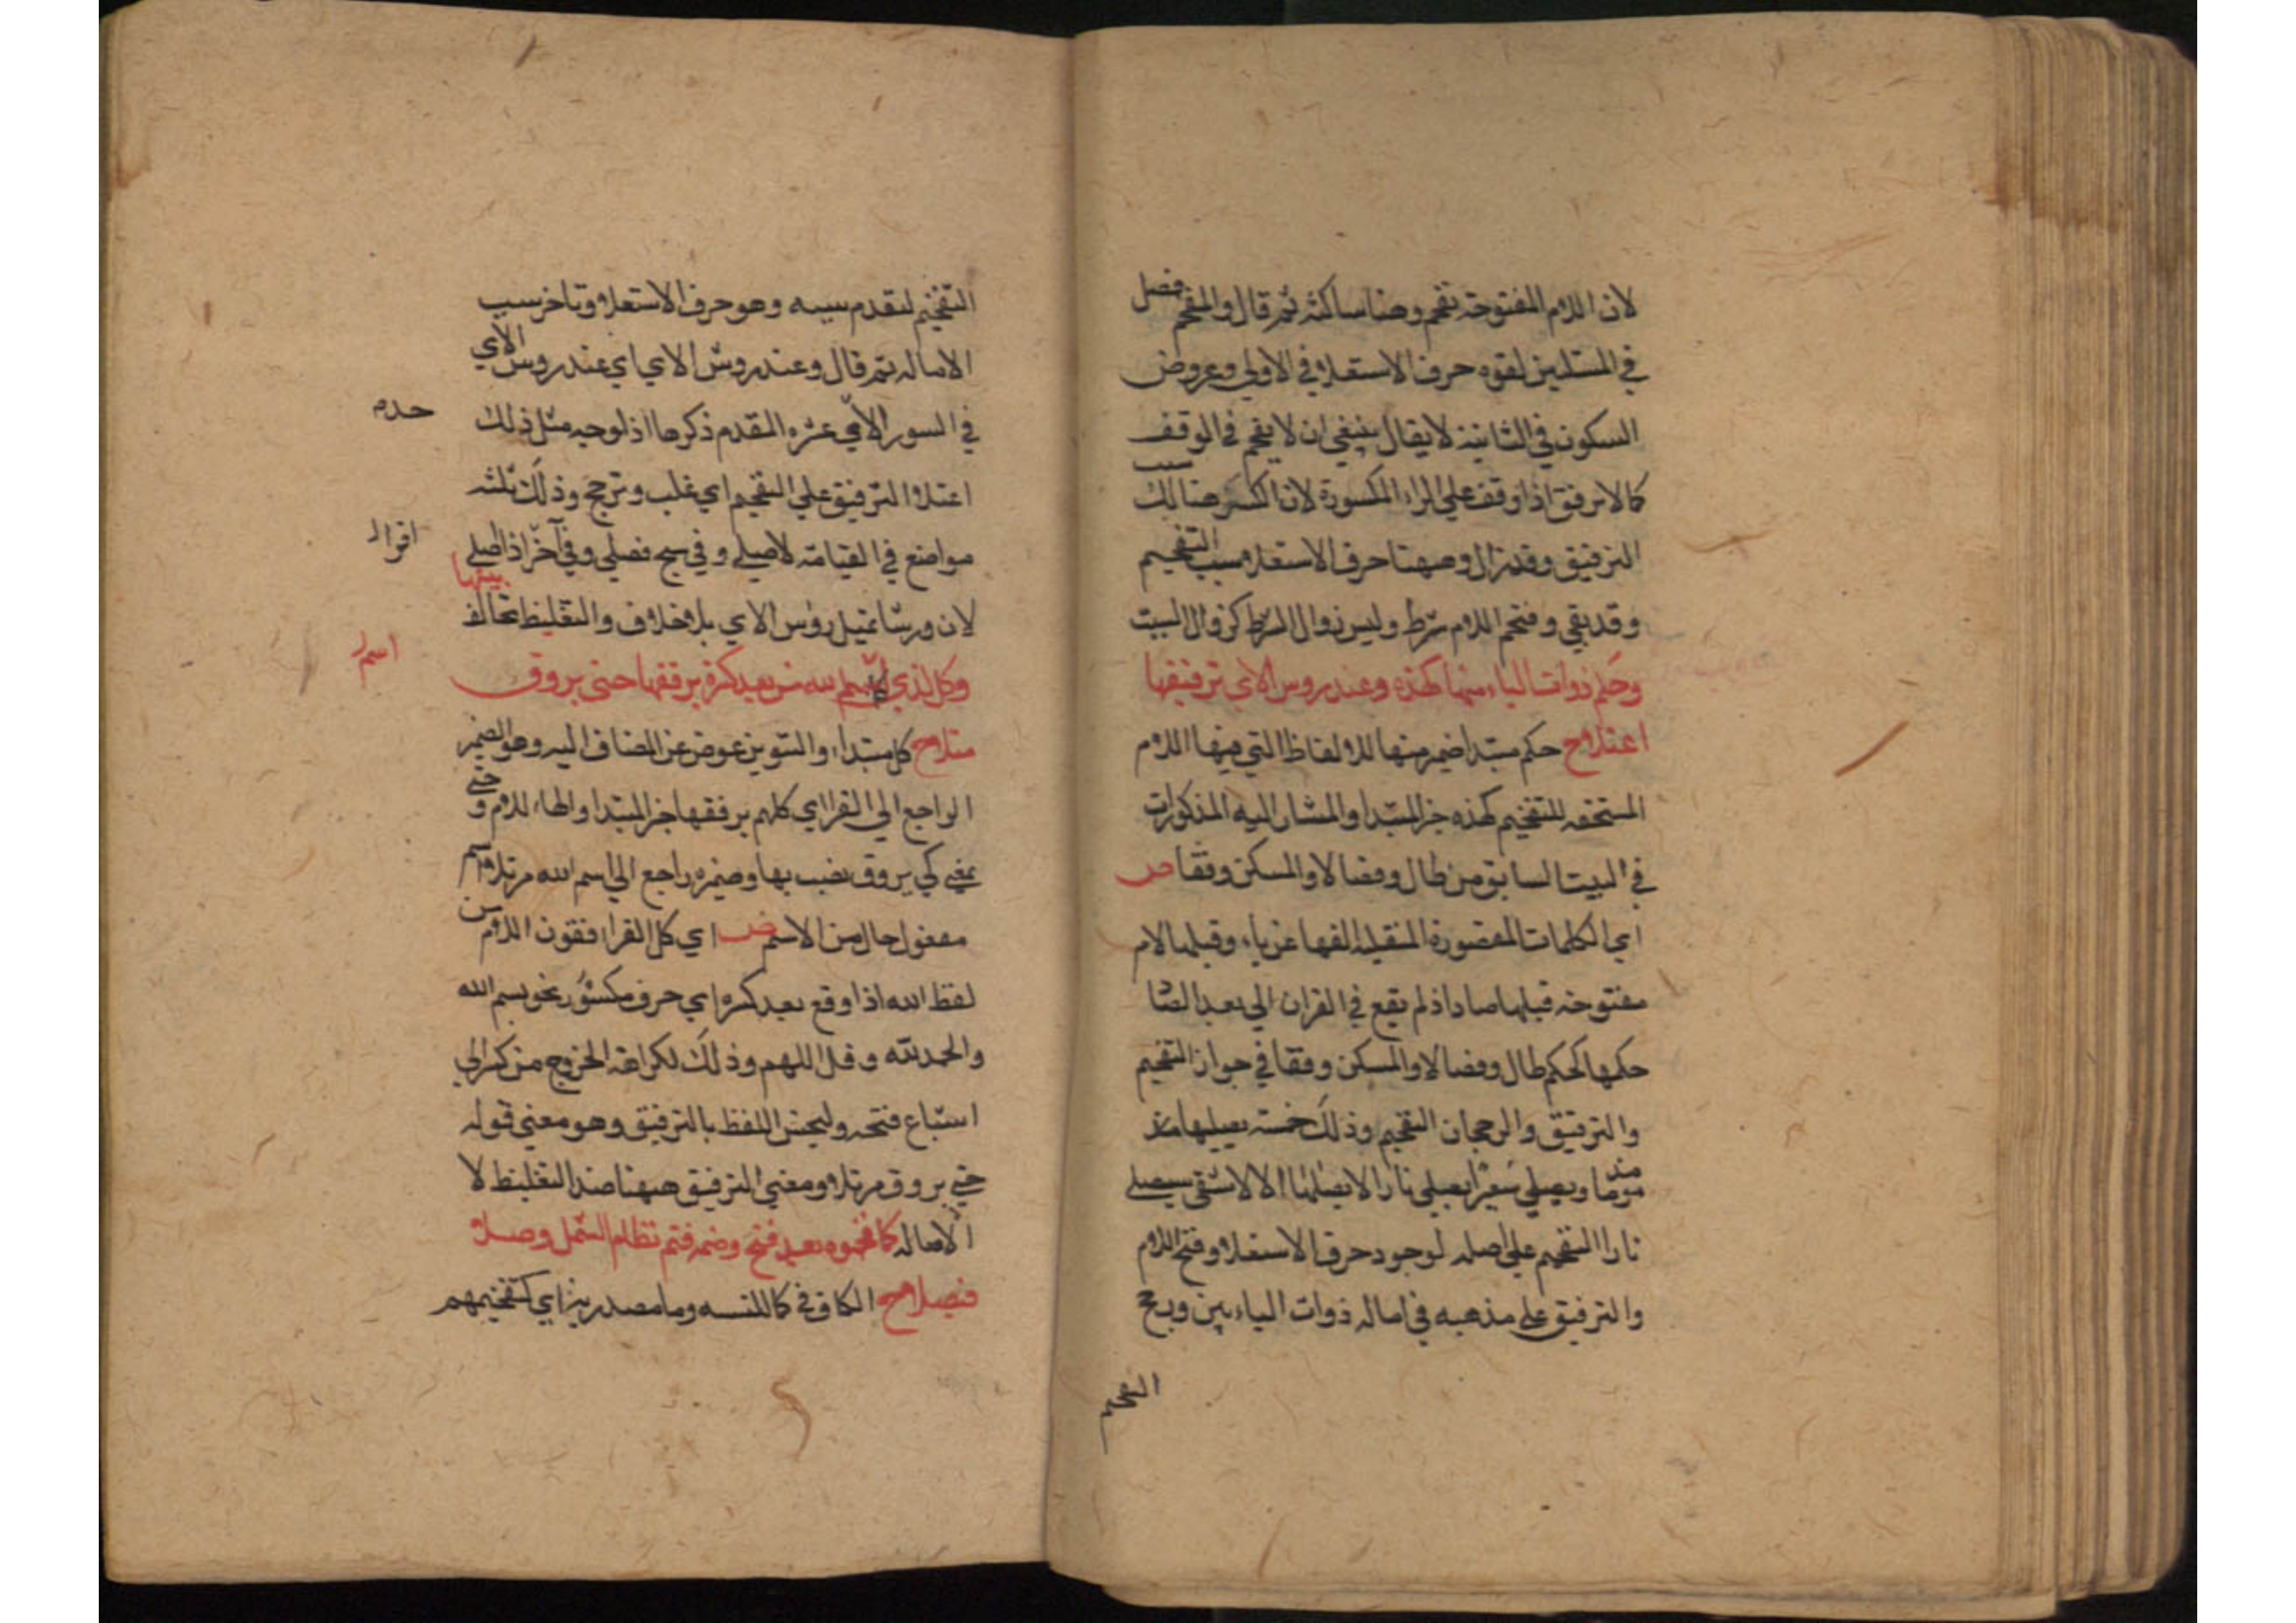 لان اللام المفتوحة تفخم وهنا ساكنة ثم قال والمفخم فضل
في المسئلتين لقوه حرف الاستعلا في الاولي وعروض
السكون في الثانية لا يقال ينبغي ان لا يفخم في الوقف
كما لا يرقق اذا وقف علي الراء المكسورة لان الكسر هنالك سبب
الترقيق وقد زال وههنا حرف الاستعلا سبب التفخيم
وقد بقي وفتحم اللام شرط وليس زوال الشرط كزوال السبب
وحكم ذوات الياء منها كهذه وعند روس الاي ترقيقها
اعتلا ح حكم مبتدا ضمير منها للالفاظ التي فيها اللام
المستحقه للتفخيم كهذه خبر المبتدا والمشار اليه المذكورات
في البيت السابق من طال وفصالا والمسكن وقفا ص
اي الكلمات المقصورة المنقلبة الفها عن ياء وقبلها لام
مفتوحة قبلها صاد اذ لم يقع في القران الي بعد الصا
حكمها كحكم طال وفصالا والمسكن وقفا في جواز التفخيم
والترقيق والرجحان التفخيم وذلك خمسة يصليها مذ
موما ويصلي سعيرا يصلي نارا لا يصلاها الا الاشقي سيصلي
نارا التفخيم علي اصله لوجود حرف الاستعلا وفتح اللام
والترقيق علي مذهبه في اماله ذوات الياء بين ورجح
التفخيم
التفخيم لتقدم سببه وهو حرف الاستعلا وتاخر سبب
الاماله ثم قال وعند روس الاي اي عند روس الاي
في السور الاحدي عشره المقدم ذكرها اذ لوجيه مثل ذلك
اعتلا الترقيق علي التفخيم اي غلب وترجح وذلك ثلثه
اقوال
مواضع في القيامة لا صلي وفي سبح فصلي وفي آخر اذا صلي
لان ورشا تميل روس الاي بلا خلاف والتغليظ تخالف بينها
اسم
وكل لذي اسم الله من بعد كسرة يرققها حتي يروق
مرتلا ح كل مبتدا والتنوين عوض عن المضاف اليه وهو الضمير
الراجع الي القرا اي كلهم يرققها خبر المبتدا والهاء للام و حتي
بمعني كي يروق نصب بها وضميره راجع الي اسم الله مرتلا اسم
مفعول حال من الاسم ص اي كل القرا رققون اللام من
لفظ الله اذا وقع بعد كسره اي حرف مكسور نحو بسم الله
والحمد لله وقل اللهم وذلك لكراهة الخروج من كسر الي
اشباع فتحه وليحسن اللفظ بالترقيق وهو معني قوله
حتي يروق مرتلا ومعني الترقيق ههنا ضد التغليظ لا
الاماله كما فخموه بعد فتح وضمه فتم نظام الشمل وصلا و
فيصلا ح الكاف في كما للتشبيه وما مصدرية اي كتفخيمهم